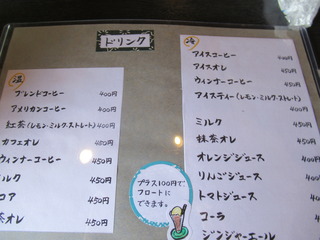 ドリンク
温
ブレンドコーヒー 400円
アメリカンコーヒー 400円
紅茶(レモン・ミルク・ストレート) 400円
カフェオレ 450円
ウィンナーコーヒー 450円
ミルク 450円
ココア 450円
抹茶オレ 450円
冷
アイスコーヒー 400円
アイスオレ 450円
ウィンナーコーヒー 450円
アイスティー(レモン・ミルク・ストレート) 400円
ミルク
抹茶オレ
オレンジジュース
りんごジュース
トマトジュース
コーラ
ジンジャーエール
プラス100円で、
フロートに
できます。